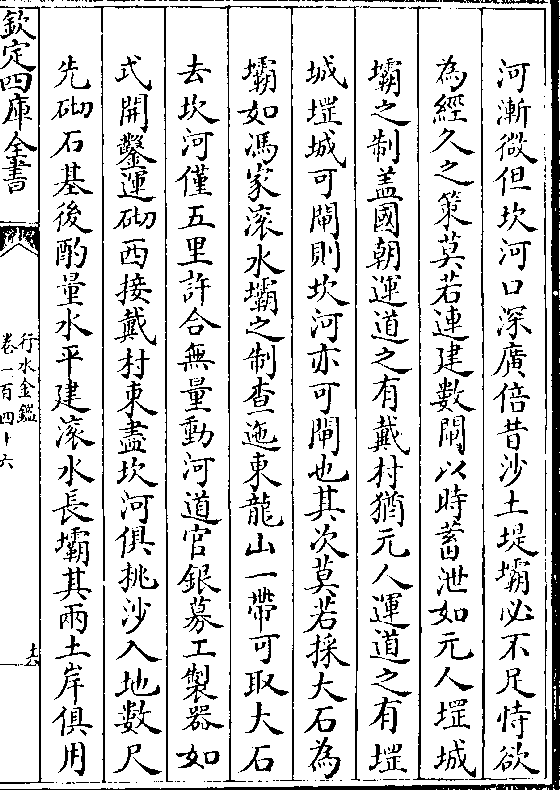 河漸微但坎河口深廣倍昔沙土堤壩必不足恃欲
為經久之策莫若連建數閘以時蓄泄如元人堽城
壩之制盖國朝運道之有戴村猶元人運道之有堽
城堽城可閘則坎河亦可閘也其次莫若採大石為
壩如馮家滚水壩之制查迤東龍山一帶可取大石
去坎河僅五里許合無量動河道官銀募工製器如
式開鑿運砌西接戴村東盡坎河俱挑沙入地數尺
先砌石基後酌量水平建滚水長壩其兩土岸俱用
欽定四庫全書
行水金鑑
卷一百四十六